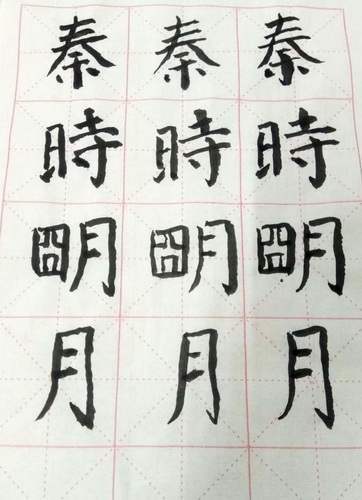 秦時朙月
秦時朙月
秦時朙月